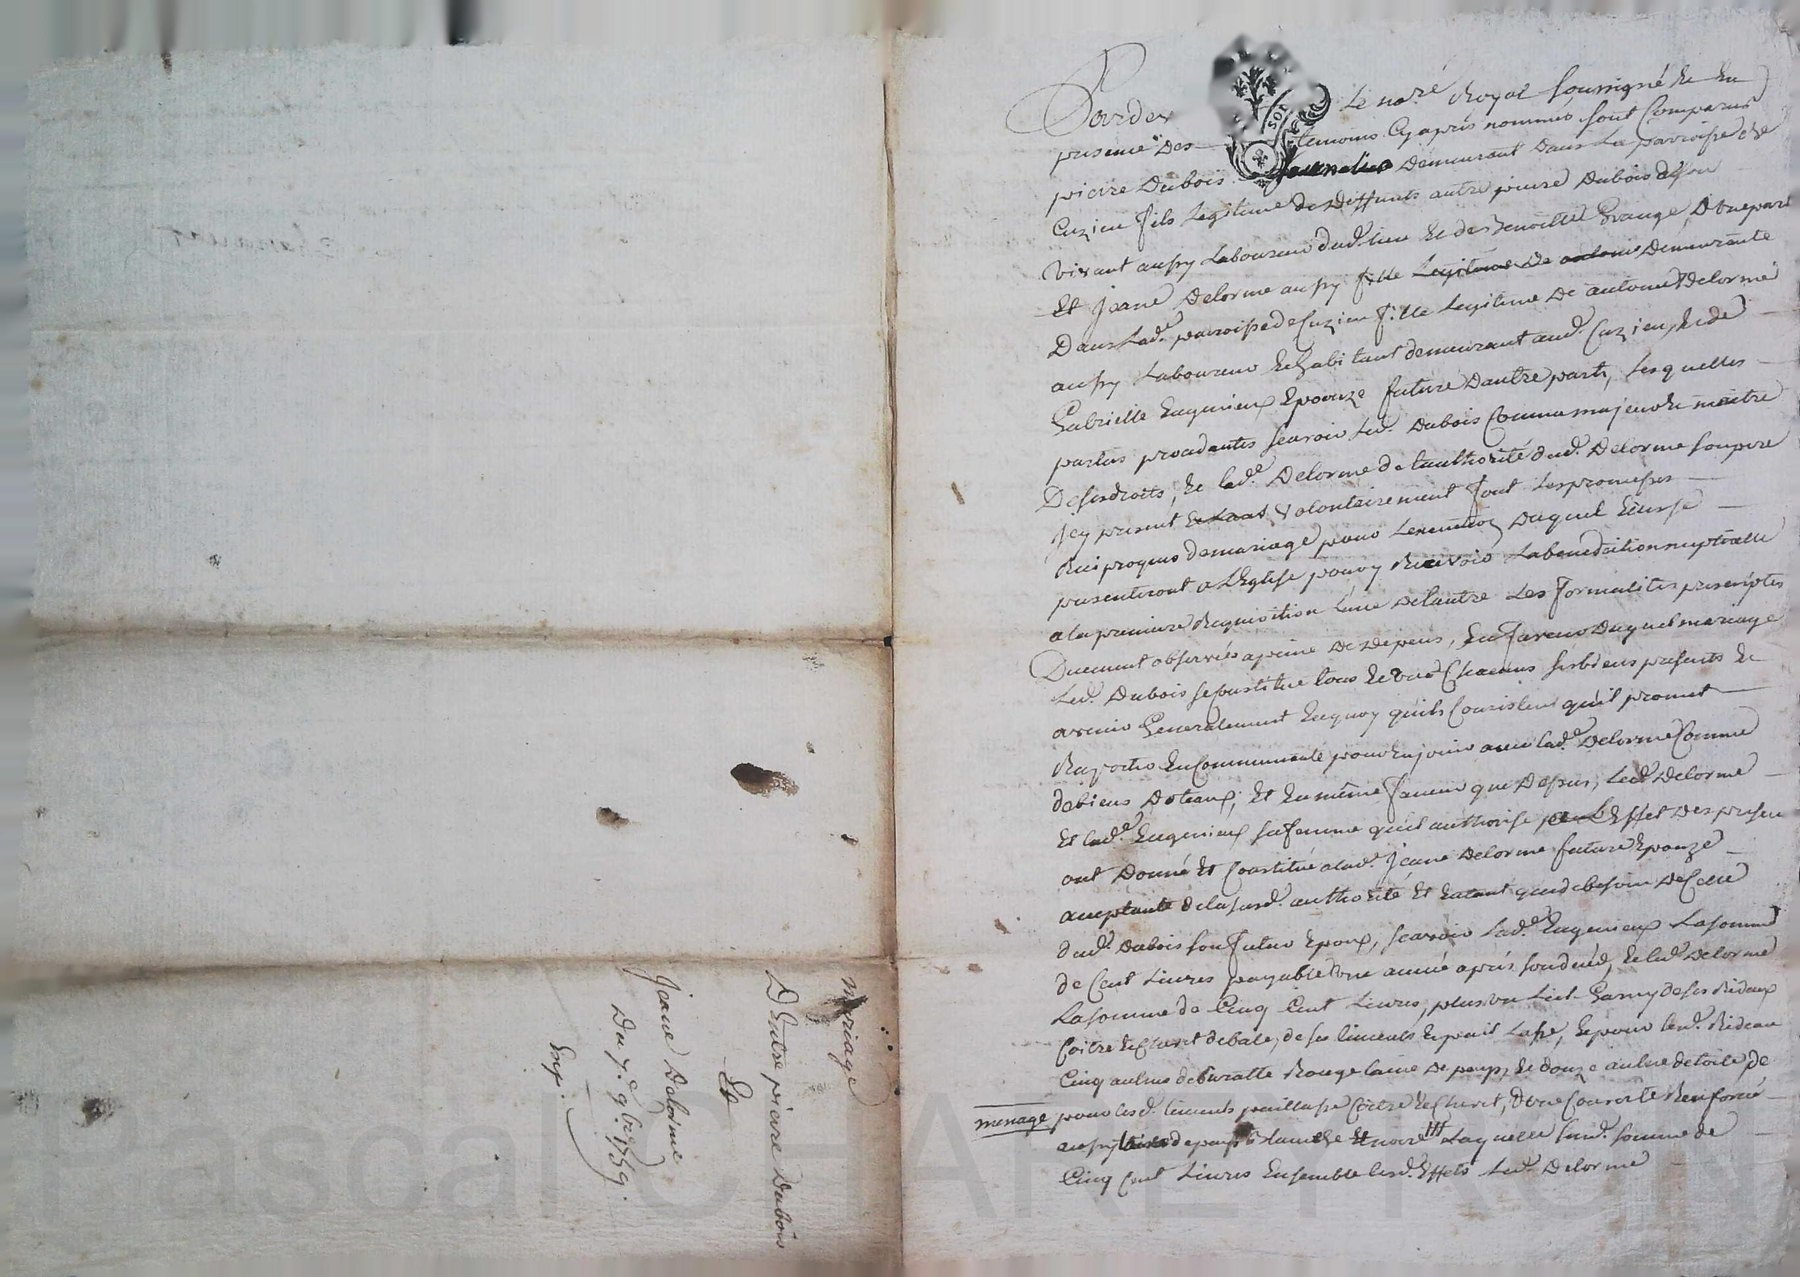 mariage
D'Entre pierre Dubois
Et
Jeane Delorme
Du 7e. 9bre 1759.
Exp.
Pardev Le nore Royal soussigné Et En
presence Des temoins Cy apres nommés sont Comparus
pierre Dubois journalier Demeurant Dans La parroisse de
Cuzieu fils Legitime de Deffunts autre pierre Dubois
vivant aussy Laboureur dud. lieu Et de Benoitte Grange, D'une part
Et Jeane Delorme aussy fille Legitime de antoine Demeurante
Dans Lade. parroisse de Cuzieu fille Legitime De antoine Delorme
aussy Laboureur Et habitant demeurant aud. Cuzieu, Et de
Gabrielle Eugenieux Epouze future D'autre part, Lesquelles
parties procedantes scavoir Led. Dubois Comme majeur Et maitre
De ses droits, Et lade. Delorme de l'authorité dud. Delorme son pere
Jcy present volontairement font Les promesses
Reciproques de mariage pour L'execution Duquel Eux se
presenteront a L'Eglise pour y Recevoir La benediction nuptialle
a la premiere Requisition L'une De L'autre Les formalités prescriptes
Duement observés a peine De Depens, En faveur Duquel mariage
Led. Dubois se Constitue tous Et un Chacuns ses biens presents Et
avenir Generalement En quoy qu'ils Consistent qu'il promet
Raporter En Communauté pour En jouir avec lade. Delorme Comme
de biens Doteaux; Et En même faveur que Dessus, Led. Delorme
Et lade. Eugenieux sa femme qu'il authorise pour L'Effet Des presen
ont Donné Et Constitué a lade. Jeane Delorme future Epouze
acceptante de la susd. authorité Et Entant que de besoin De Celle
dud. Dubois son futur Epoux, scavoir Lade. Eugenieux La somme
de Cent Livres payable une année après son deced, Et led. Delorme
La somme de Cinq Cent Livres, plus un Lict Garny de ses Rideaux
Coitre Et Chevet de bale, de ses linceuls Et paillasse, Et pour lesd. Rideau
Cinq aulnes de buratte Rouge laine De pays, Et douze aulne de toile de
menage pour lesd. linceuls paillasse Coitre Et Chevet, d'une Couverte Renforcée
aussy laine de pays blanche Et noire Laquelle susd. somme de
Cinq Cent Livres Ensemble lesd. Effets Led. Delorme